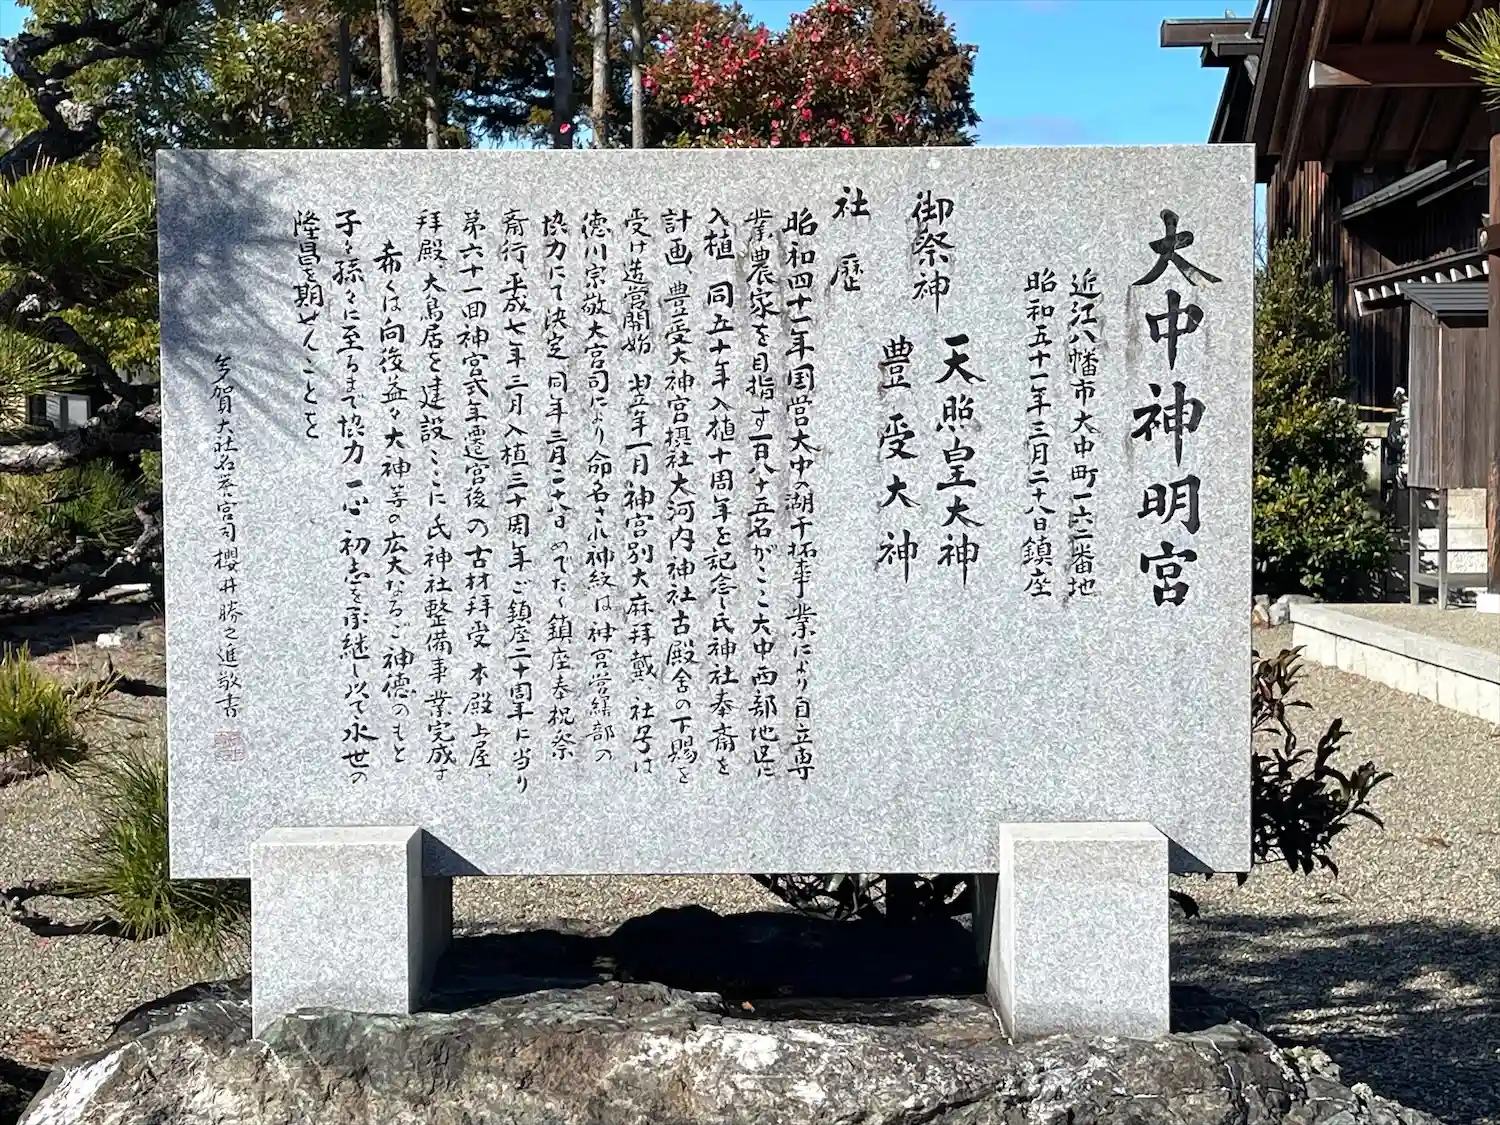 大中神明宮
近江八幡市大中町一六二番地
昭和五十一年三月二十八日鎮座
御祭神 天照皇大神
豊受大神
社歴
昭和四十一年国営大中の湖干拓事業により自立専
業農家を目指す一百八十五名がここ大中西部地区に
入植 同五十年入植十周年を記念し氏神社奉斎を
計画、豊受大神宮摂社大河内神社古殿舎の下賜を
受け造営開始 翌年一月神宮別大麻拝戴、社号は
徳川宗敬大宮司により命名され神紋は神宮営繕部の
協力にて決定 同年三月二十八日めでたく鎮座奉祝祭
斎行、平成七年三月入植三十周年ご鎮座二十周年に当り
第六十一回神宮式年遷宮後の古材拝受 本殿上屋、
拝殿、大鳥居を建設ここに氏神社整備事業完成す
希くは向後益々大神等の広大なるご神徳のもと
子々孫々に至るまで協力一心初志を承継し以て永世の
隆昌を期せんことを
多賀大社名誉宮司櫻井勝之進敬書